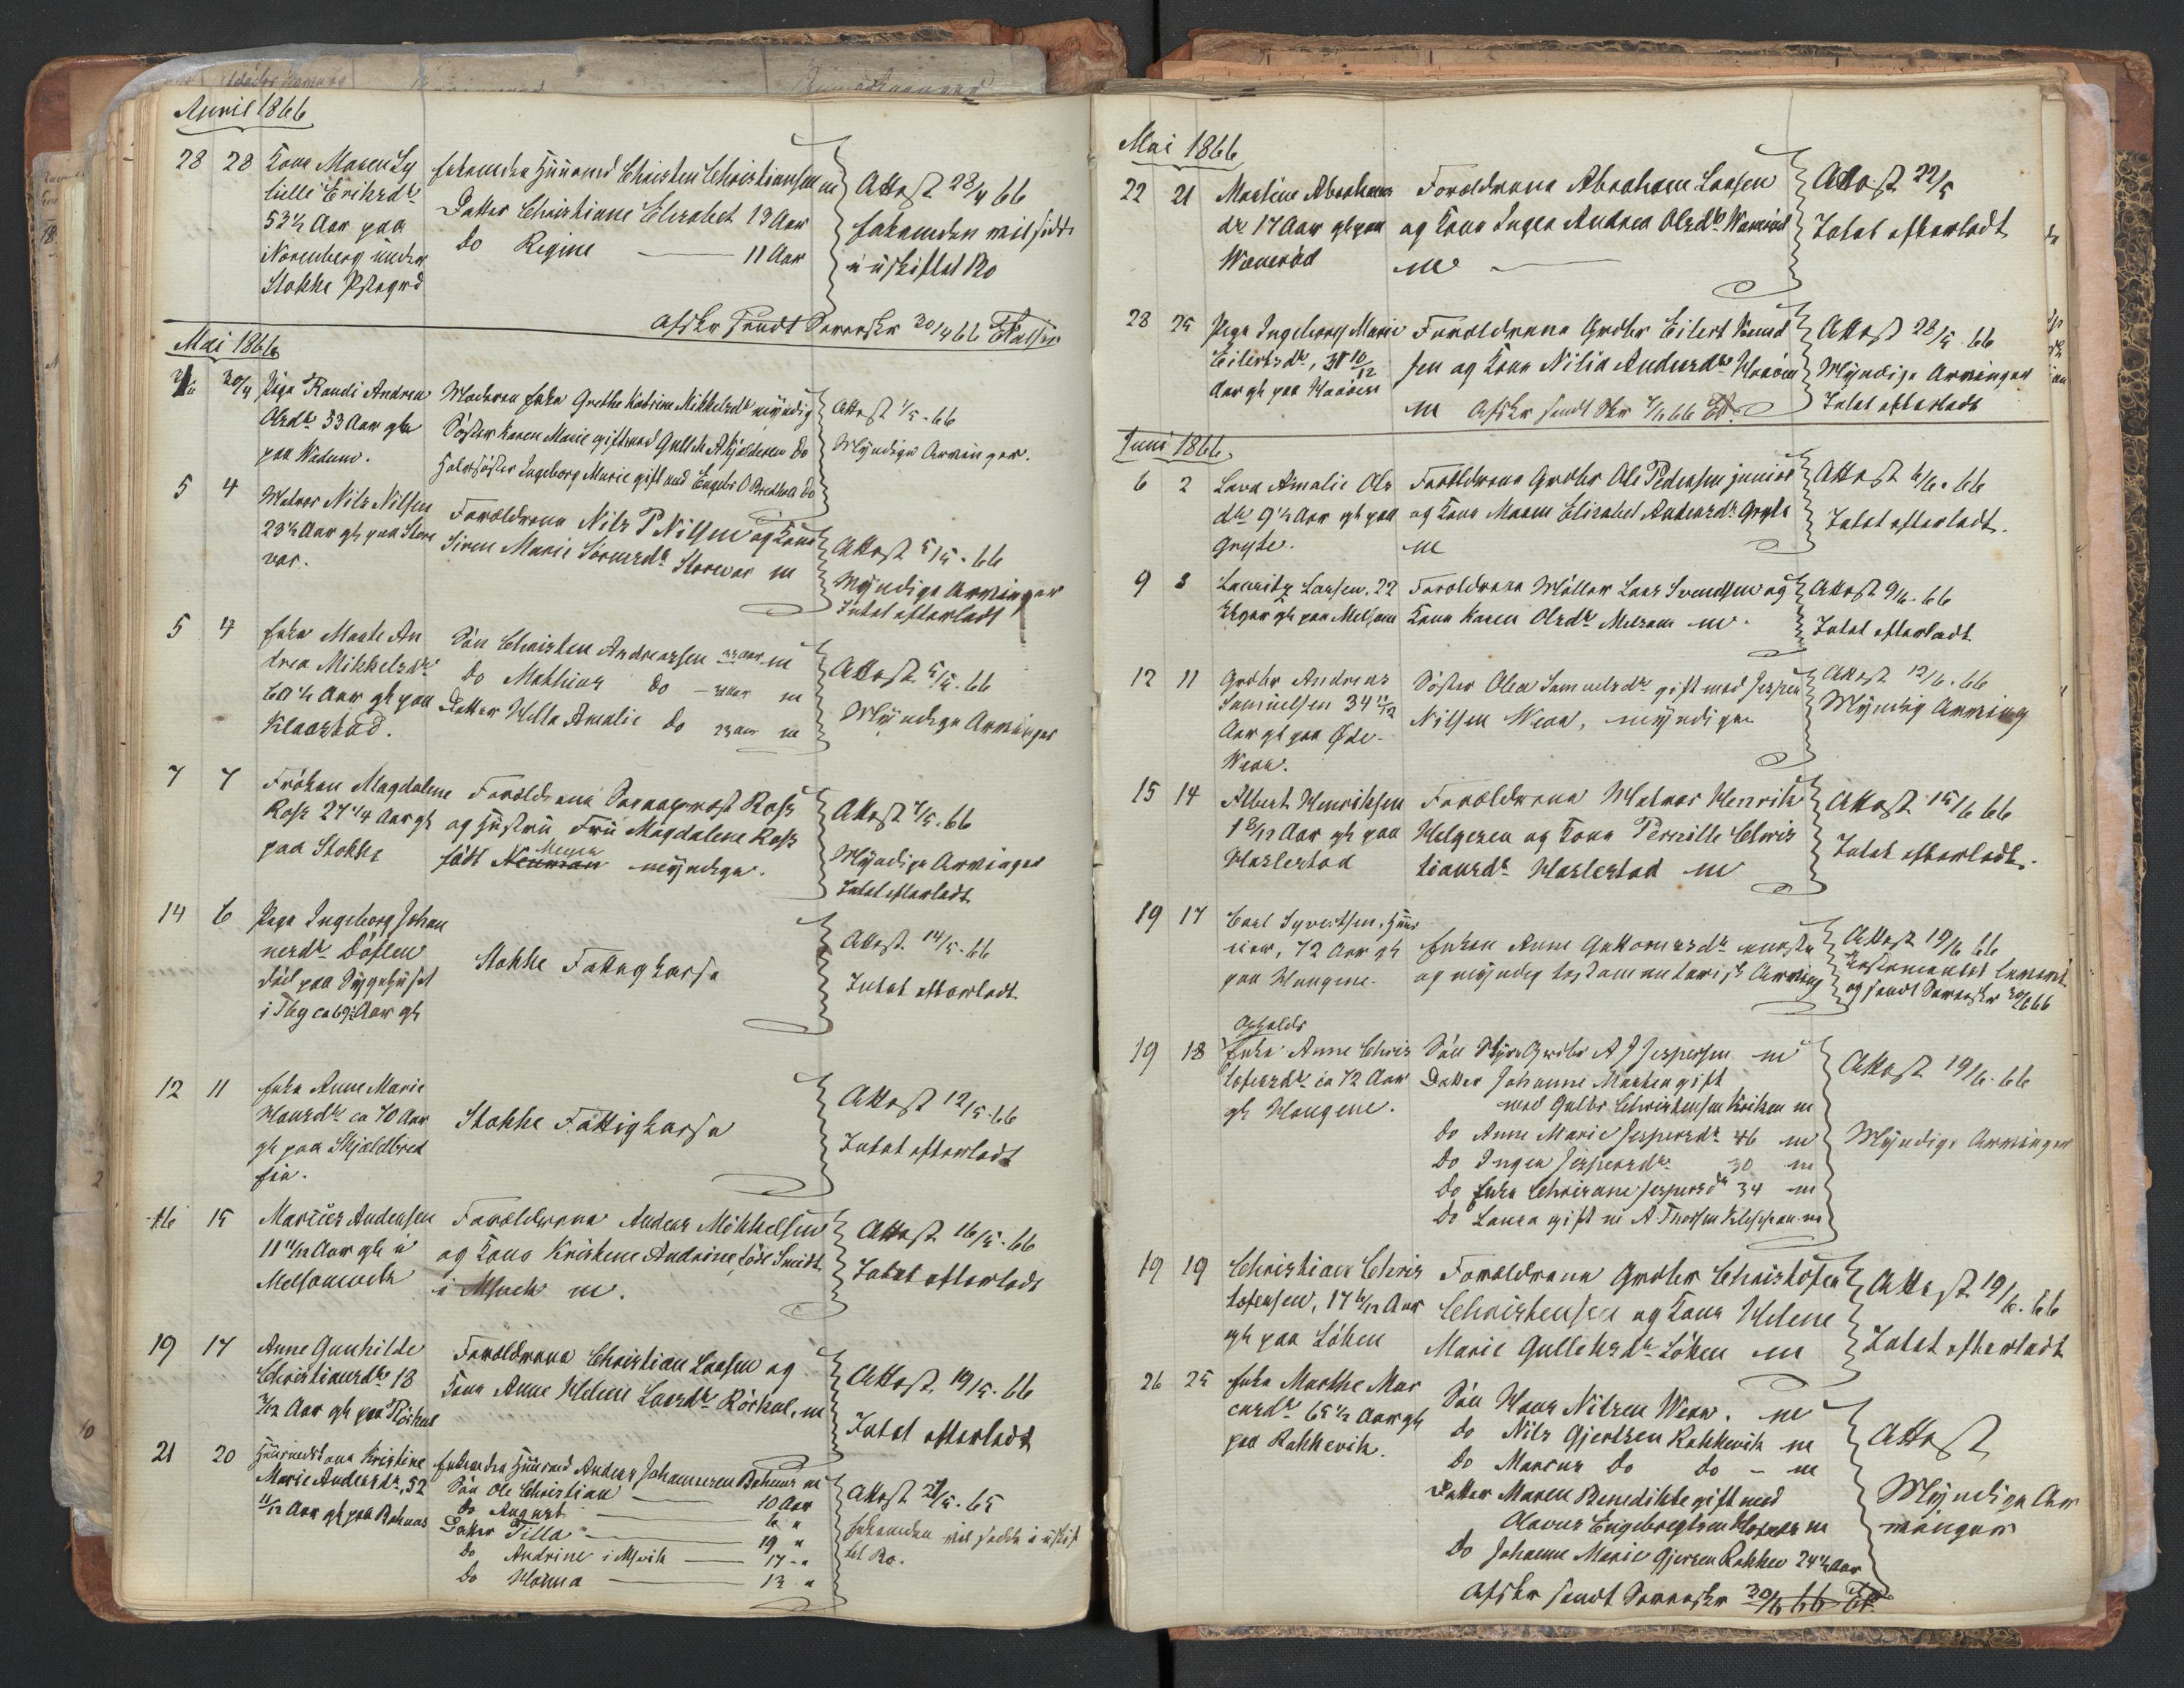 April 1866
28 28 Kone Maren Sy
bille Eriksdr
53½ Aar paa
Norenberg under
Stokke Pstegrd
Enkemden Huusmd Christen Christiansen m
Datter Christiane Elisabet 13 Aar
do Regine 11 Aar
Attest 28/4 66
Enkemanden vil sidde
i uskiftet Bo
Afskr sendt Sorenskr 30/4 66
Mai 1866
30/4 Pige Randi Andrea
Olsdr 33 Aar gl
paa Wadum.
Moderen Enke Grethe Katrine Mikkelsdr myndig
Søster Karen Marie gift med Gullik A Hjolderen do
Halvsøster Ingeborg Marie gift med Engebr O do
Attest 1/5 - 66
Myndige Arvinger.
5 4 Matros Nils Nilsen
23½ Aar gl paa Store
var.
Forældrene Nils P Nilsen og Kone
Siren Marie Sørensdr Storevar m
Attest 5/5 - 66
Myndige Arvinger
Intet efterladt
5 4 Enke Marte An
drea Mikkelsdr
60½ Aar gl paa
Klaastad.
Søn Christen Andreassen Aar m
do Mathias do - Aar m
Datter Hella Amalie do 23 Aar m
Attest 5/5 - 66
Myndige Arvinger
7 7 Frøken Magdalene
Ross 27¼ Aar gl
paa Stokke
Forældrene Sogneprest Ross
og Hustru Fru Magdalene Ross
Meyer
født Neuman myndige.
Attest 7/5 - 66
Myndige Arvinger
Intet efterladt
14 6 Pige Ingeborg Johan
nesdr Døflen
død paa Sygehuset
i Tbg ca 69½ Aar gl
Stokke Fattigkasse
Attest 14/5 - 66
Intet efterladt
12 11 Enke Anne Marie
Hansdr ca 70 Aar
gl paa Skjældbred
fie.
Stokke Fattigkasse
Attest 12/5 - 66
Intet efterladt
16 15 Marius Andersen
11 11/12 Aar gl i
Melsomvik
Forældrene Anders Mikkelsen
og Kone Kristene Andrine, født Smidt
i Msvik m.
Attest 16/5 - 66
Intet efterladt
19 17 Anne Gunhilde
Christiansdr 18
3/12 Aar gl paa Röskal
Forældrene Christian Larsen og
Kone Anne Helene Larsdr Röskal, m
Attest 19/5 - 66
Intet efterladt
21 20 Huusmdskone Kristine
Marie Andersdr, 52
11/12 Aar gl paa Bahuus
Enkemden Huusmd Anders Johannesen Bahuus m
Søn Ole Christian 10 Aar
do August 6 "
Datter Tilla 19 "
do Andrine i Msvik 17 - "
do Hanna 13 "
Attest 21/5 - 65
Enkemden vil sidde i uskif
tet Bo.
Mai 1866
22 21 Martine Abrahams
dr 17 Aar gl paa
Wennerød
Forældrene Abraham Larsen
og Kone Inger Andrea Olsdr Wennerød
m
Attest 22/5
Intet efterladt
28 25 Pige Ingeborg Marie
Eilertsdr, 31 10/12
Aar gl paa Haaøen
Forældrene Grdbr Eilert Knud
sen og Kone Nilia Andersdr Haaøen
m Afskr sendt Skr 1/6 66
Attest 28/5 - 66
Myndige Arvinger
Intet efterladt
Juni 1866.
6 2 Lava Amalie Ols
dr 9½ Aar gl paa
Gryte.
Forældrene Grdbr Ole Pedersen junior
og Kone Maren Elisabet Andersdr Gryte
m
Attest 6/6 - 66
Intet efterladt.
9 8 Lauritz Larsen, 22
Uger gl paa Melsom
Forældrene Møller Lars Svendsen og
Kone Karen Olsdr Melsom m.
Attest 9/6 - 66
Intet efterladt
12 11 Grdbr Andreas
Samuelsen 34 11/12
Aar gl paa Øde-
Wean.
Søster Olea Samuelsdr gift med Jesper
Nilsen Wean, myndige
Attest 12/6 - 66
Myndig Arving
15 14 Albert Henriksen
1 8/12 Aar gl paa
Haslestad
Forældrene Matros Henrik
Helgesen og Kone Pernille Chris
tiansdr Haslestad m
Attest 15/6 66
Intet efterladt.
19 17 Carl Syvertsen, Huus
eier, 72 Aar gl
paa Haugene.
Enken Anne Guttormsdr eneste
og myndig testamentarisk Arving
Attest 19/6 66
Testamentet leveret
og sendt Sorenskr 30/6 66
Opholds
19 18 Enke Anne Chris
tofersdr ca 72 Aar
gl Haugene.
Søn Grdbr A J Jespersen m
Datter Johanne Marten gift
med Gulbr Christensen m
do Anne Marie Jespersdr 46 m
do Inger Jespersdr 30 m
do Enke Chrisiane Jespersdr 34 m
do Laura gift m A Thorsen m
Attest 19/6 - 66
Myndige Arvinger
19 19 Christian Chris
tofersen, 17 6/12 Aar
gl paa Løken
Forældrene Grdbr Christofer
Christensen og Kone Helene
Marie Gulliksdr Løken m
Attest 19/6 - 66
Intet efterladt
26 25 Enke Marthe Mar
cusdr 65½ Aar gl
paa Rakkevik.
Søn Hans Nilsen Wean. m
do Nils Gjertsen Rakkevik m
do Marcus do do - m
Datter Maren Benedikte gift med
Olavus Engebregtsen m
do Johanne Marie Gjersen Rakkev 24½ Aar
Attest
Myndige Ar
vinger
Afskr sendt Sorenskr 30/6 66